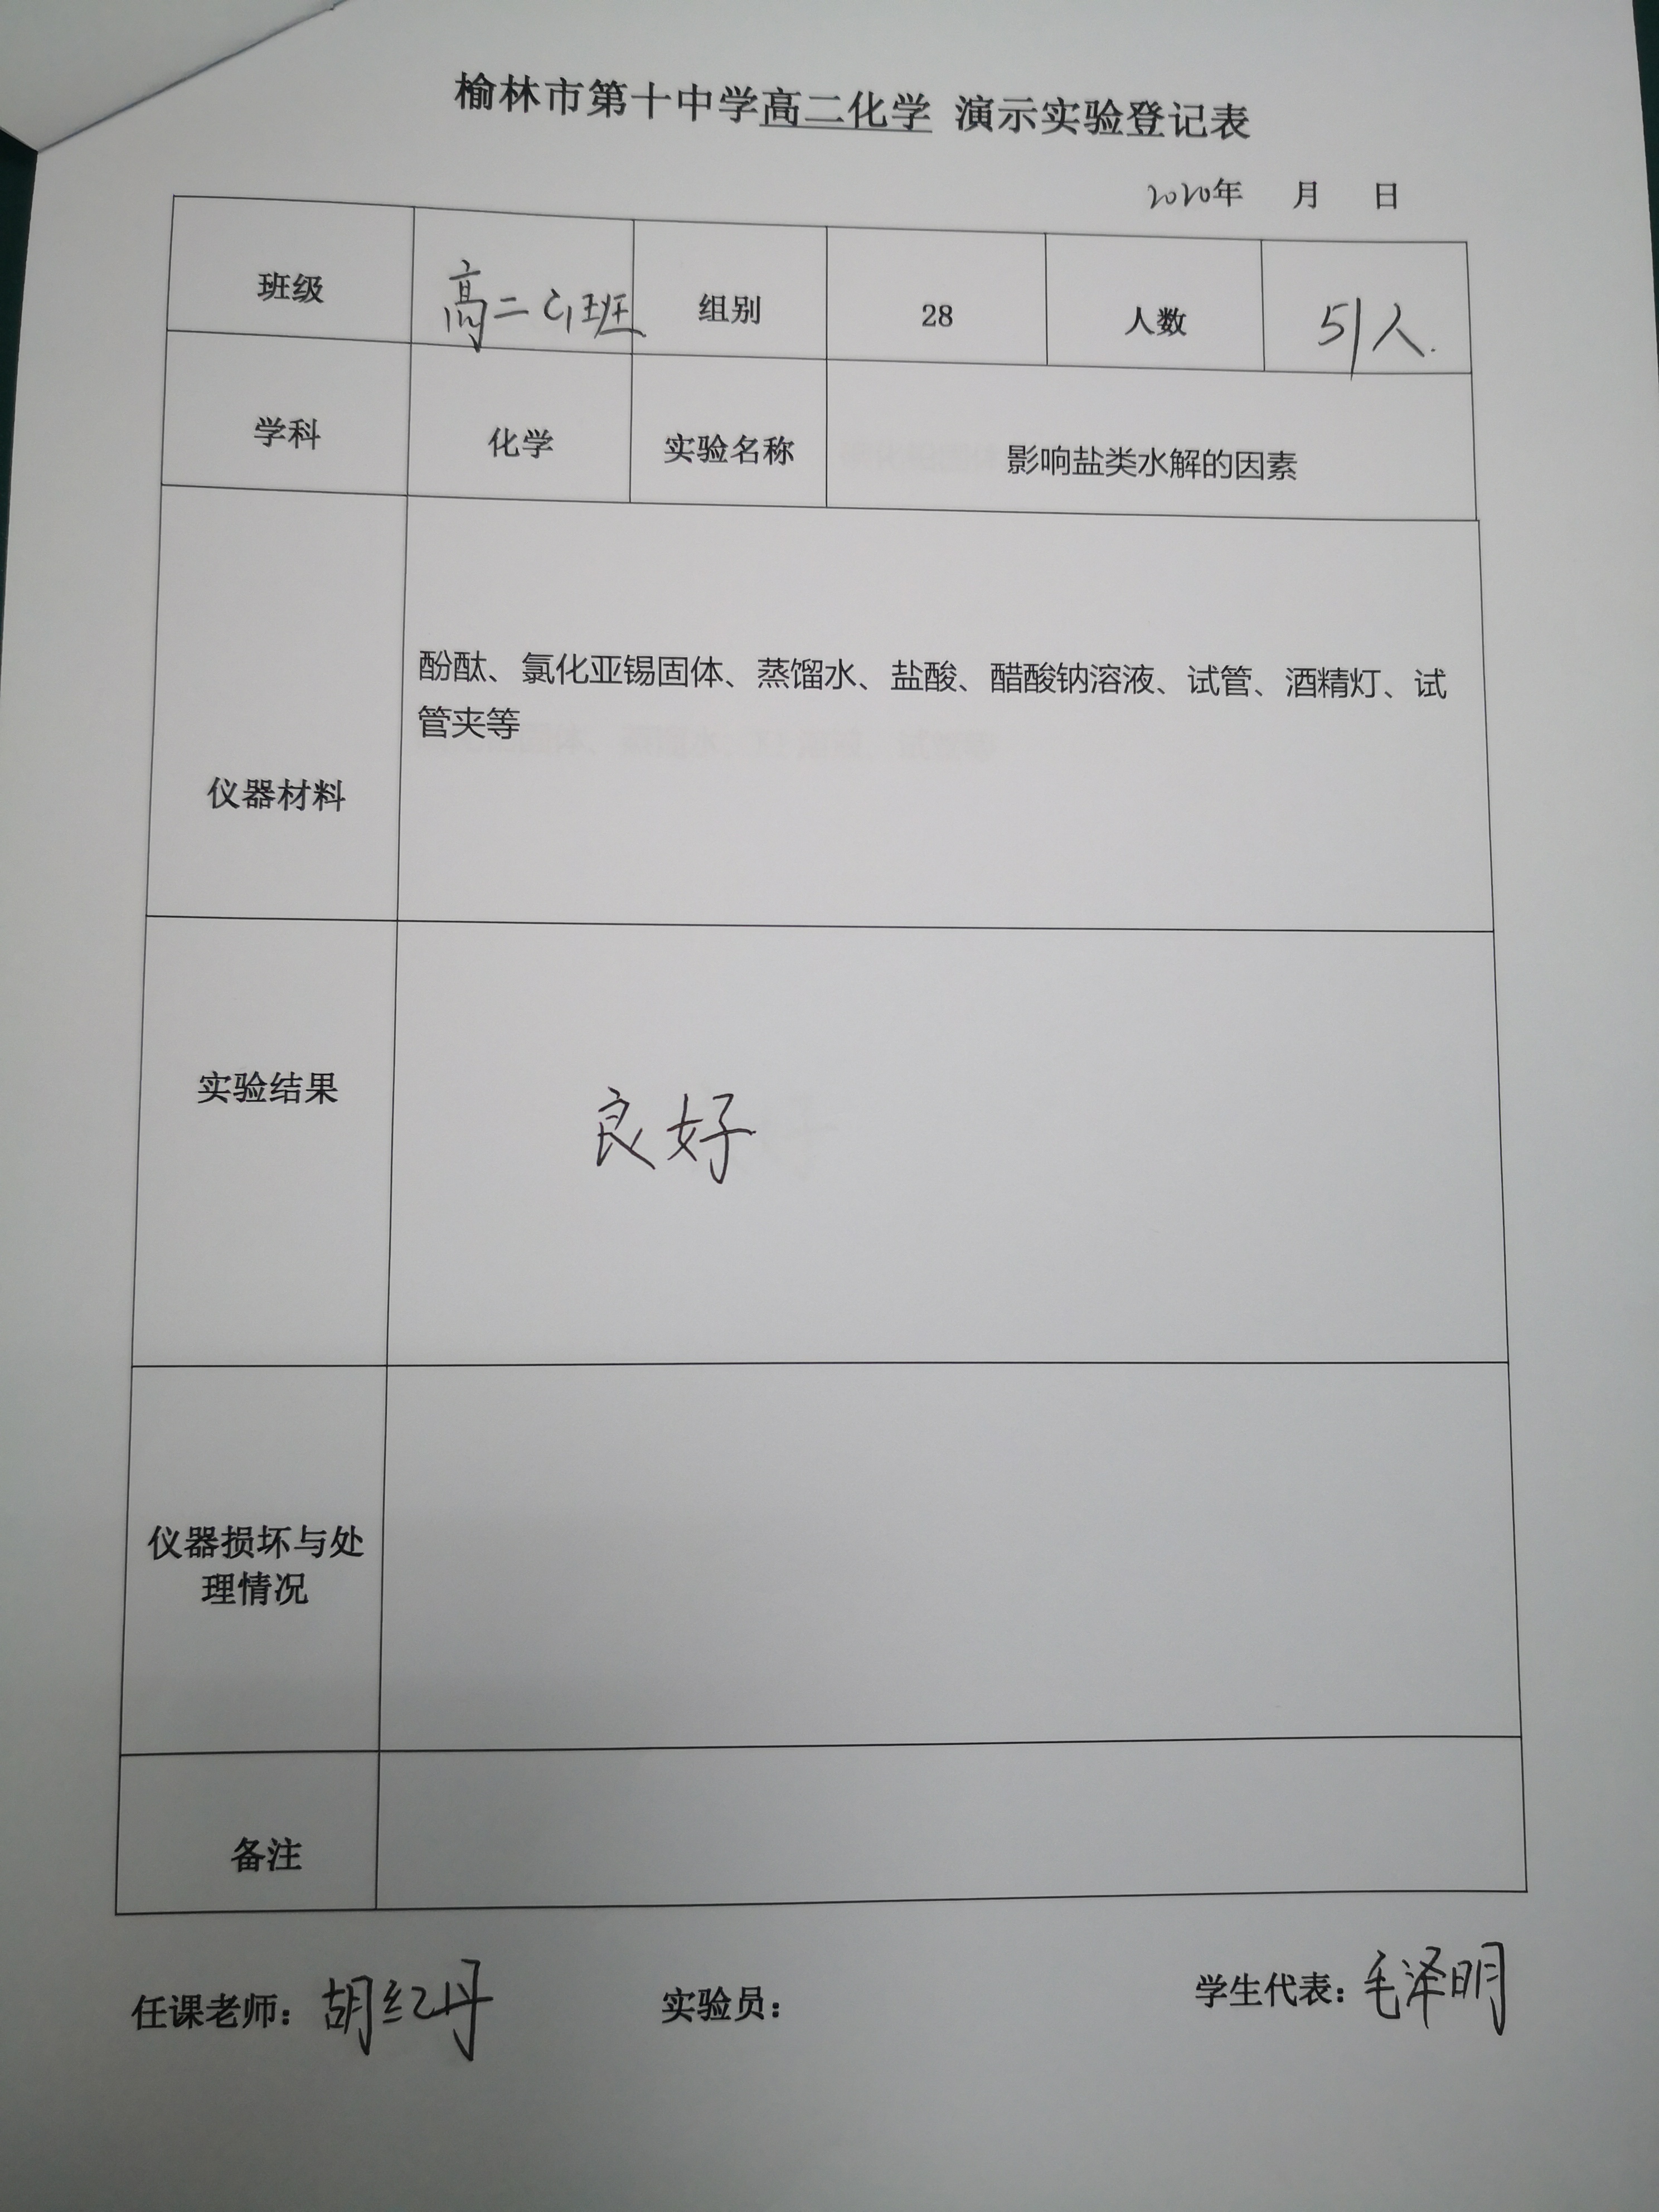 榆林市第十中学高二化学 演示实验登记表
2020年 月 日
班级 高二 C1班 组别 28 人数 51人.
学科 化学 实验名称 影响盐类水解的因素
仪器材料
酚酞、氯化亚锡固体、蒸馏水、盐酸、醋酸钠溶液、试管、酒精灯、试
管夹等
实验结果 良好
仪器损坏与处
理情况
备注
任课老师：胡红丹 实验员： 学生代表：毛泽明